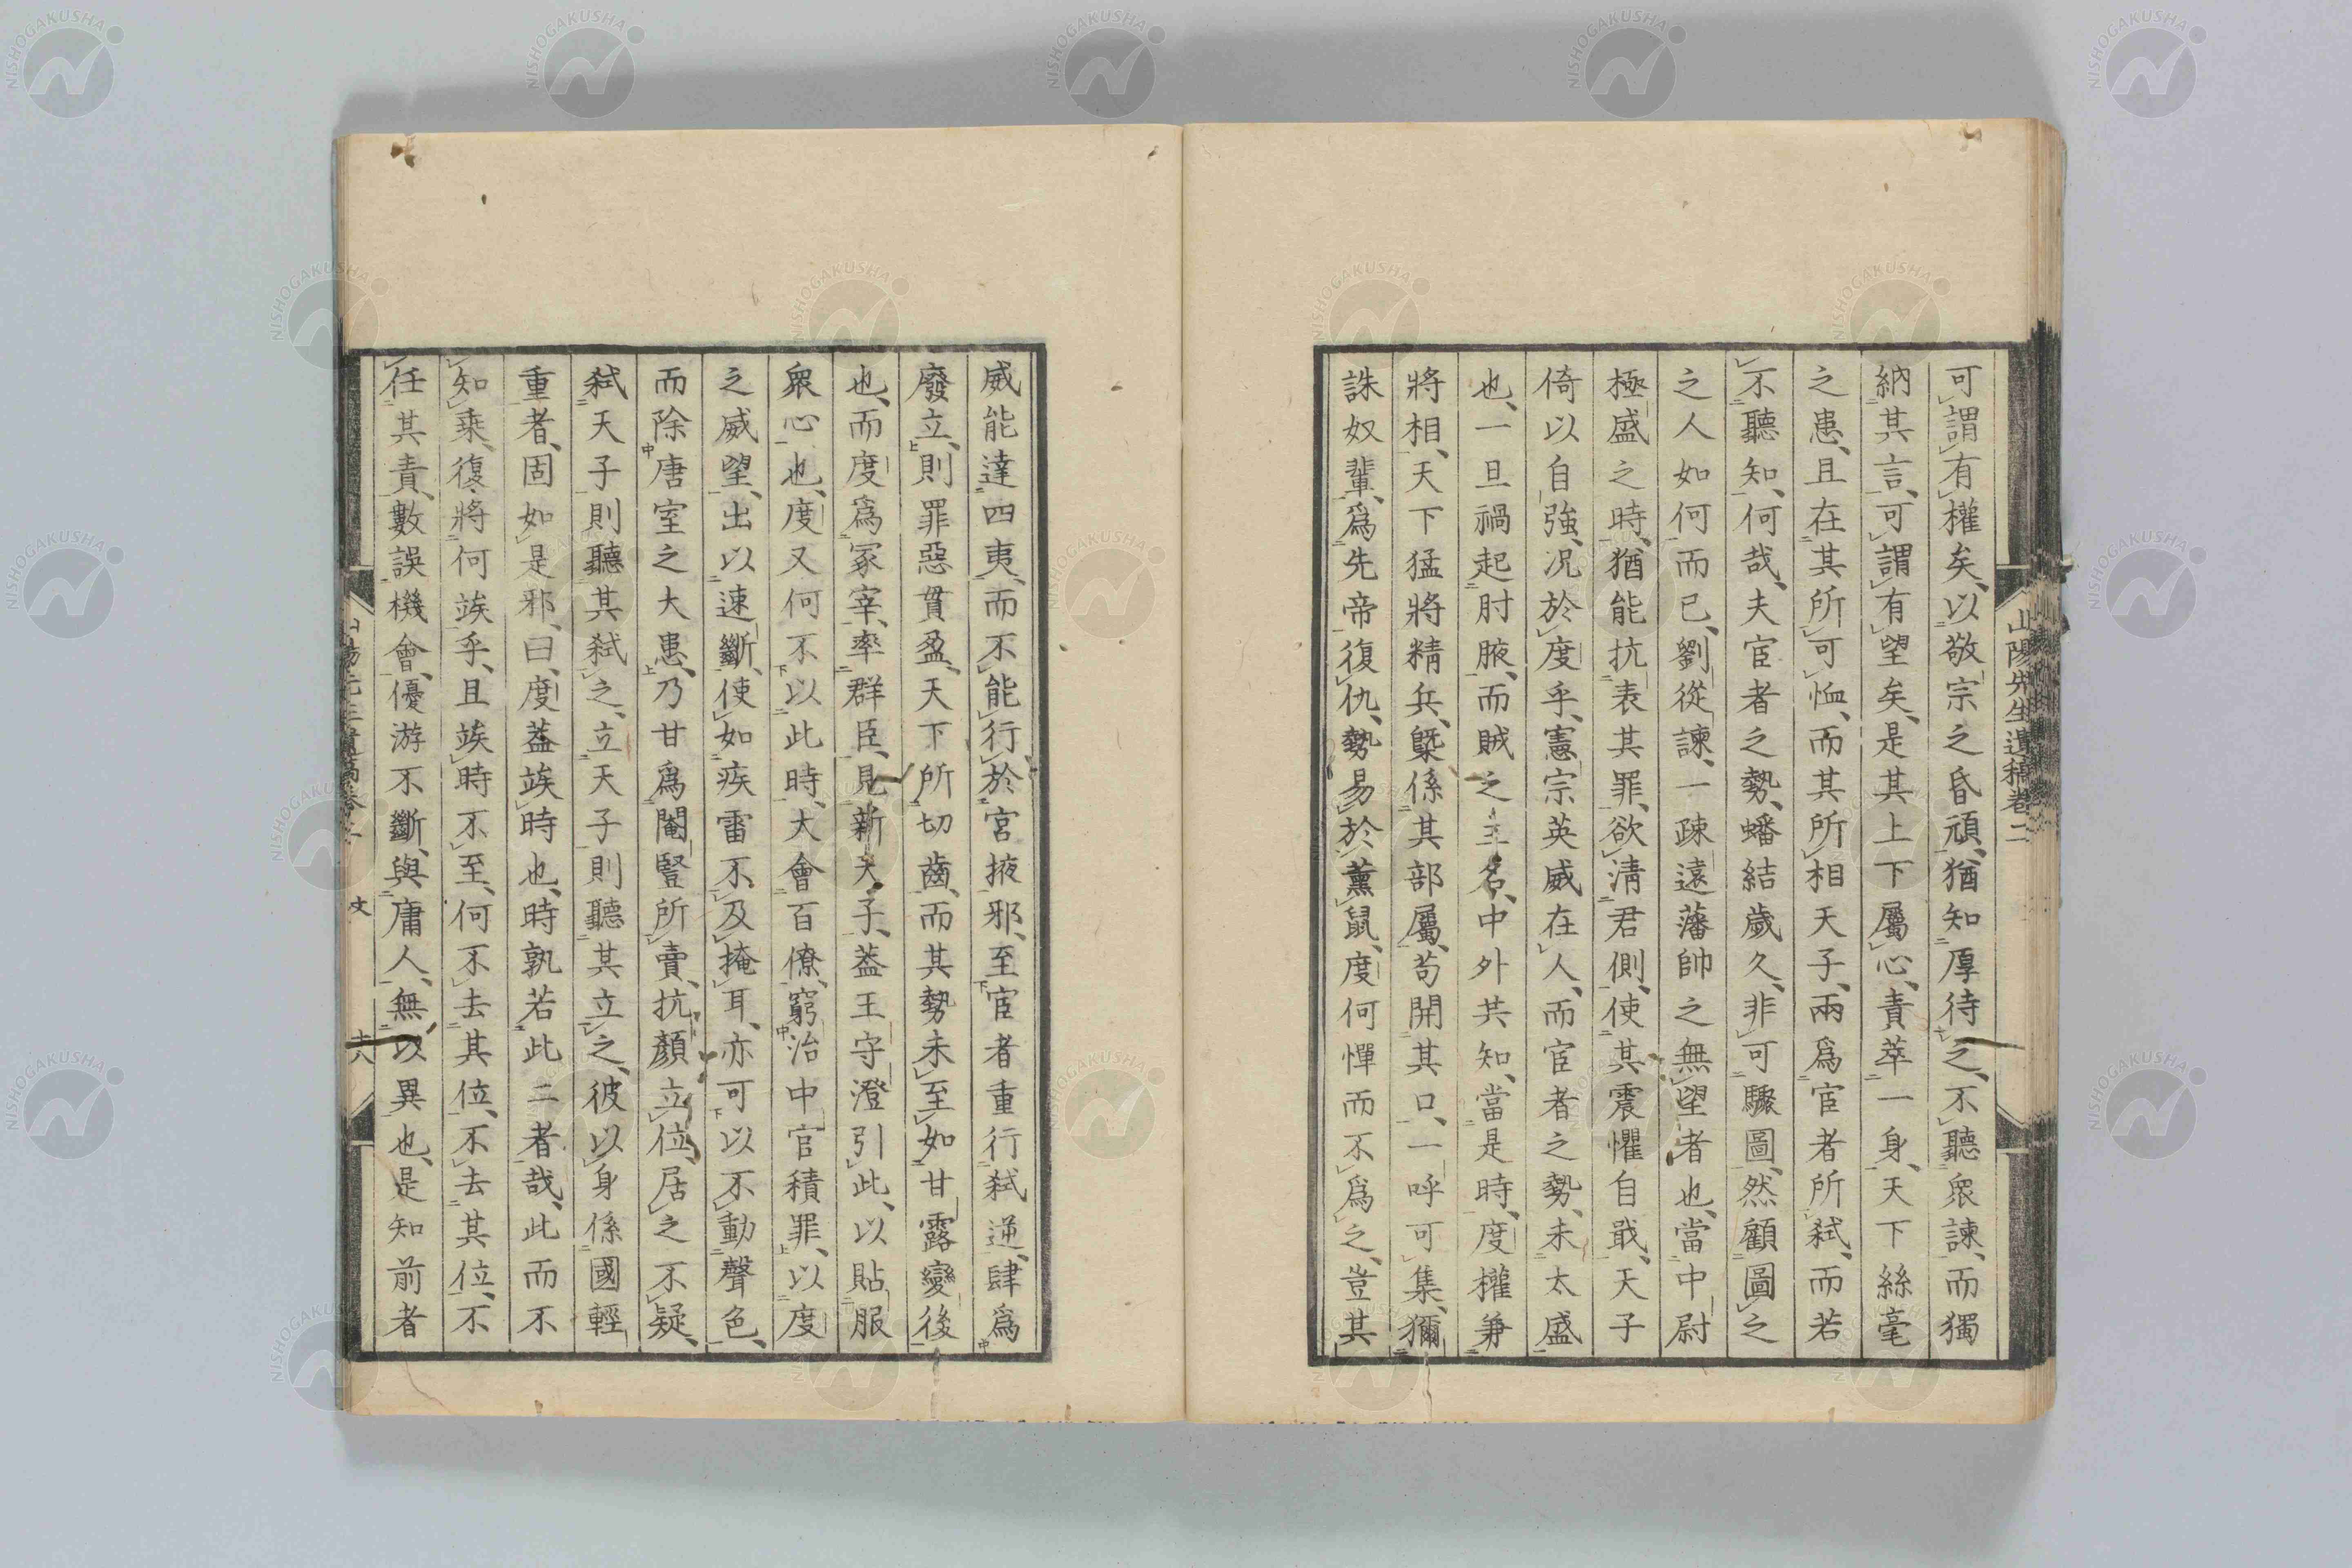 山陽先生遺稿卷二
可謂有權矣、以敬宗之昏頑、猶知厚待之、不聽衆諫、而獨
納其言、可謂有望矣、是其上下屬心、責萃一身、天下絲毫
之患、且在其所可恤、而其所相天子、兩爲宦者所弑、而若
不聽知、何哉、夫宦者之勢、蟠結歲久、非可驟圖、然顧圖之
之人如何而已、劉從諫、一疎遠藩帥之無望者也、當中尉
極盛之時、猶能抗表其罪、欲淸君側、使其震懼自戢、天子
倚以自強、况於度乎、憲宗英威在人、而宦者之勢、未太盛
也、一旦禍起肘腋、而賊之主名、中外共知、當是時、度權兼
將相、天下猛將精兵、槩係其部屬、苟開其口、一呼可集、獮
誅奴輩、爲先帝復仇、勢易於薰鼠、度何憚而不爲之、豈其
威能達四夷、而不能行於宮掖邪、至宦者重行弑逆、肆爲
廢立、則罪惡貫盈、天下所切齒、而其勢未至如甘露變後
也、而度爲冢宰、率群臣、見新天子、葢王守澄引此、以貼服
衆心也、度又何不以此時、大會百僚、窮治中官積罪、以度
之威望、出以速斷、使如疾雷不及掩耳、亦可以不動聲色、
而除唐室之大患、乃甘爲閹豎所賣、抗顏立位、居之不疑、
弑天子則聽其弑之、立天子則聽其立之、彼以身係國輕
重者、固如是邪、曰、度葢竢時也、時孰若此二者哉、此而不
知乘、復將何竢乎、且竢時不至、何不去其位、不去其位、不
任其責、數誤機會、優游不斷、與庸人、無以異也、是知前者
文
十八